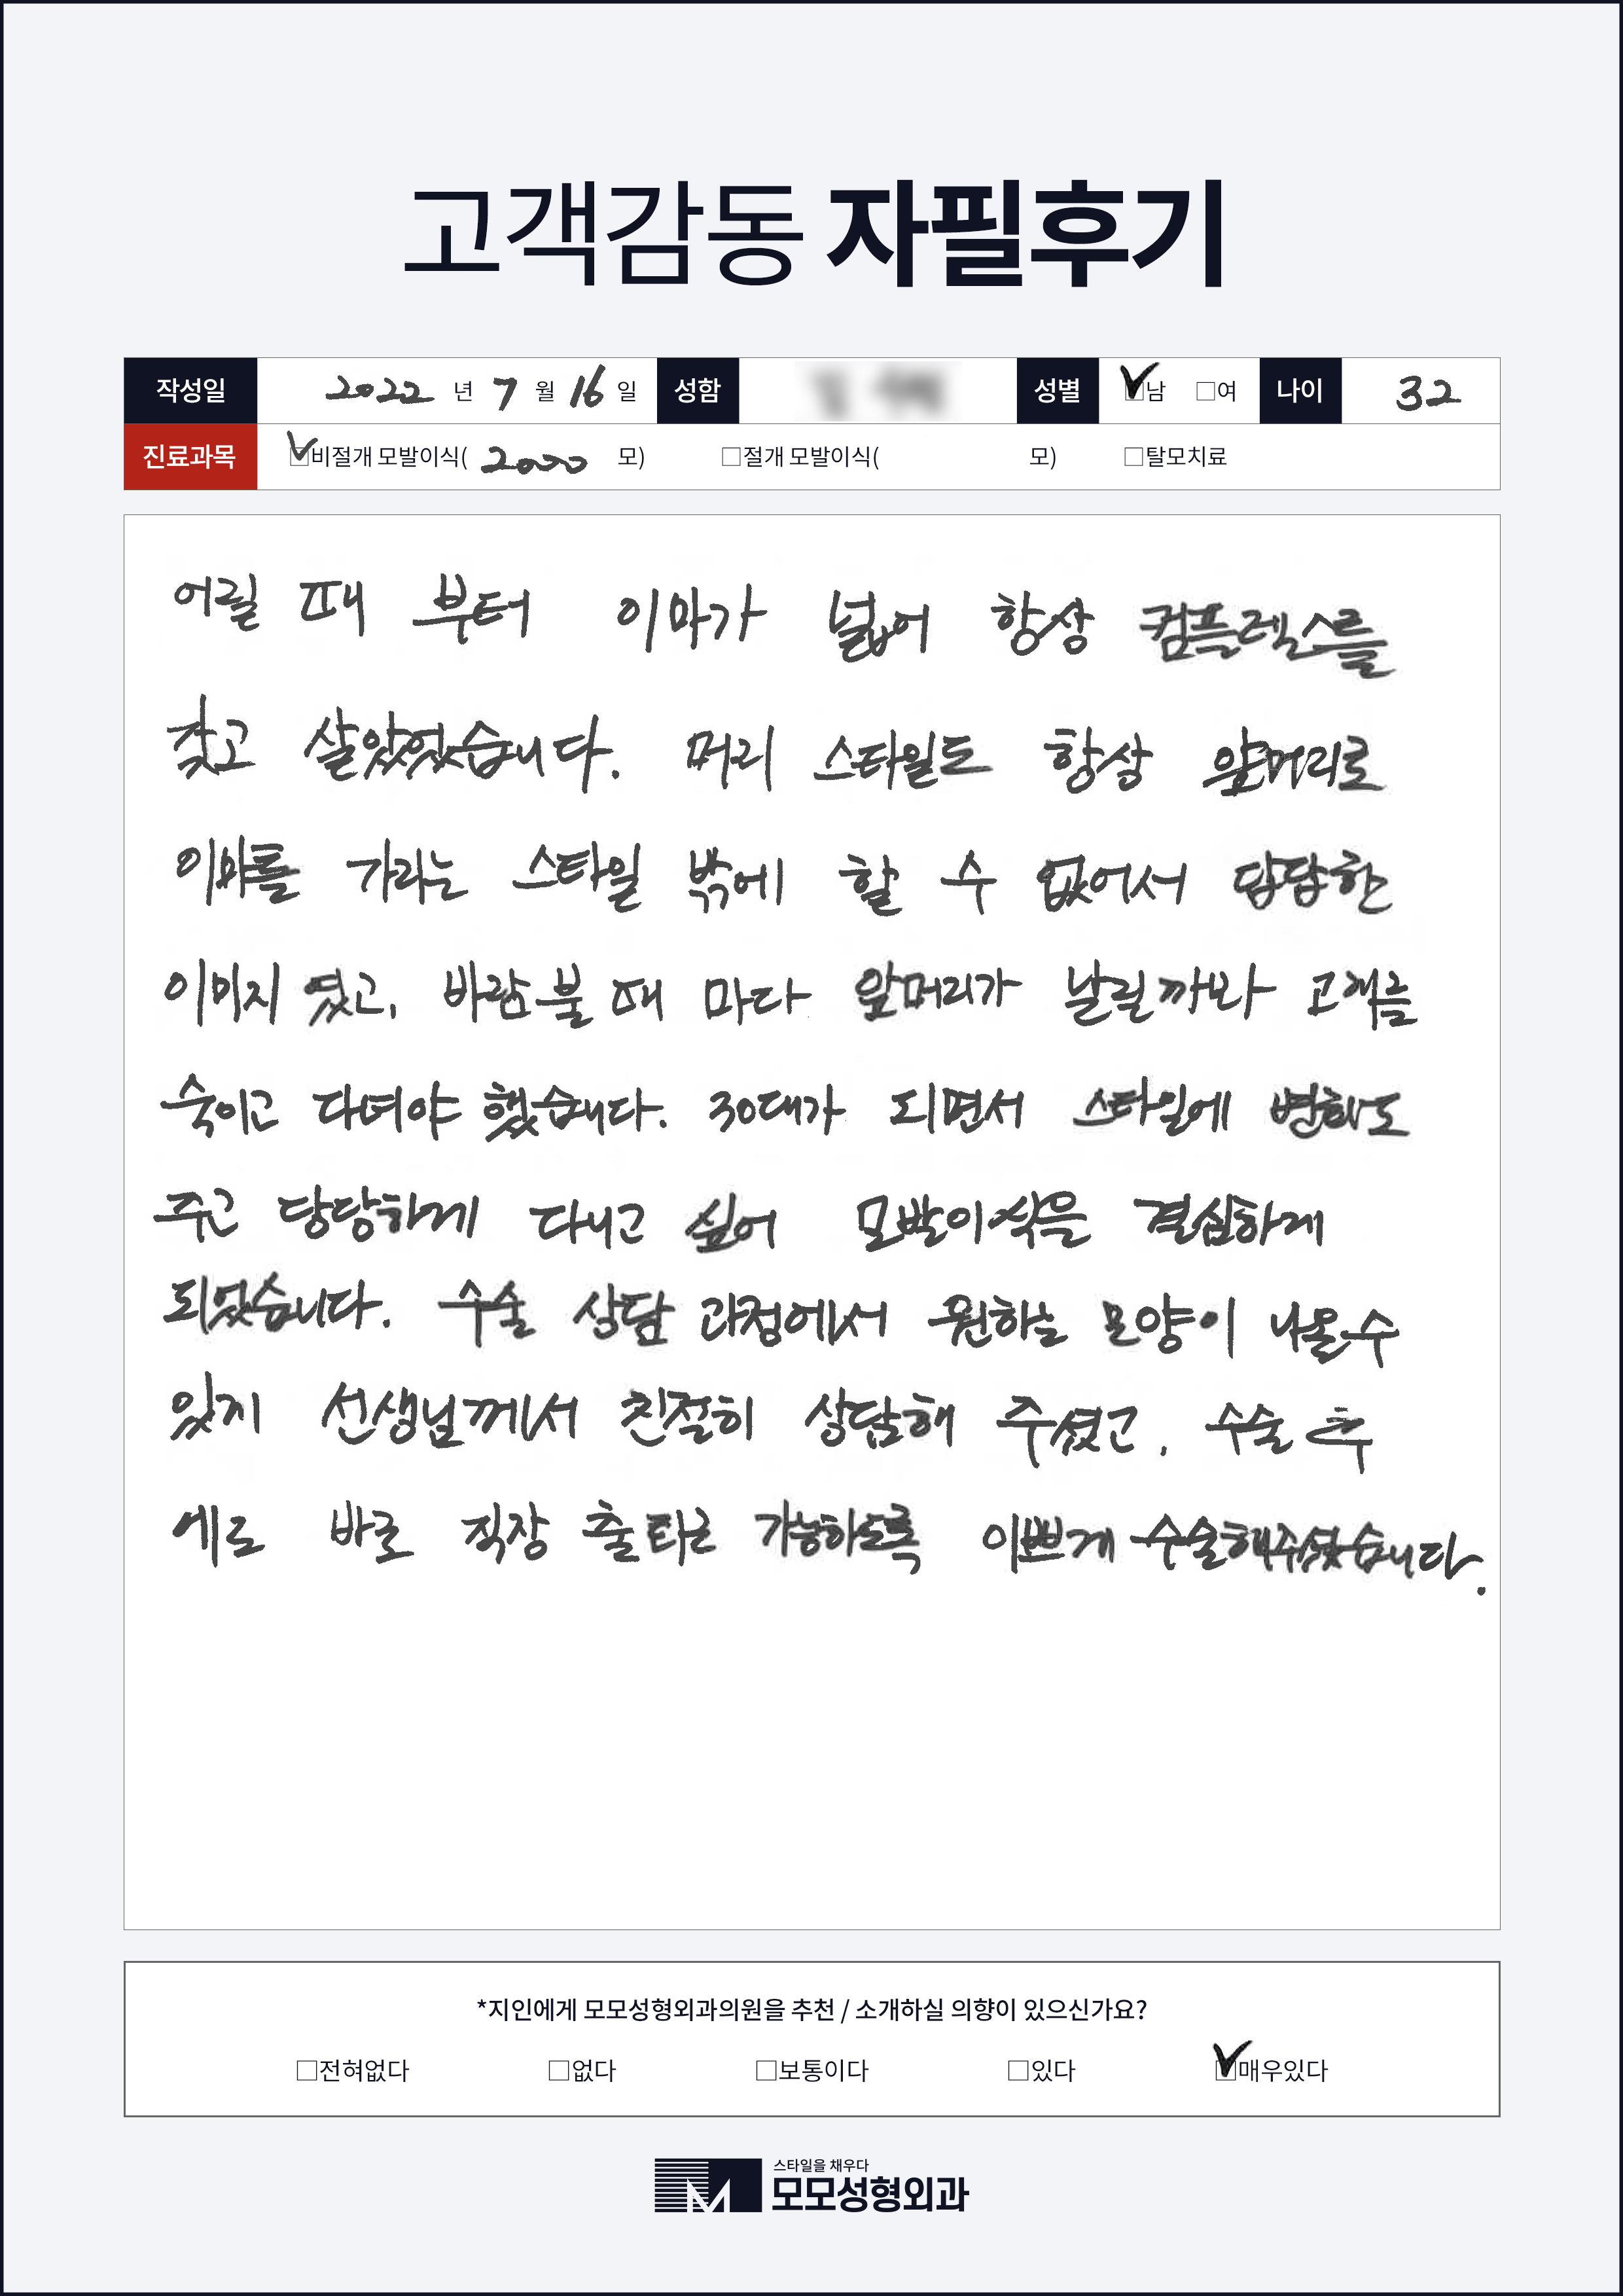 고객감동 자필후기
작성일 2022 년 7 월 16 일 성함 성별 ☑남 □여 나이 32
진료과목 ☑비절개 모발이식( 2000 모) □절개 모발이식( 모) □탈모치료
어릴 때 부터 이마가 넓어 항상 컴플렉스를
갖고 살았었습니다. 머리 스타일도 항상 앞머리로
이마를 가리는 스타일 밖에 할 수 없어서 답답한
이미지 였고, 바람 불 때 마다 앞머리가 날릴까봐 고개를
숙이고 다녀야 했습니다. 30대가 되면서 스타일에 변화도
주고 당당하게 다니고 싶어 모발이식을 결심하게
되었습니다. 수술 상담 과정에서 원하는 모양이 나올수
있게 선생님께서 친절히 상담해 주셨고, 수술 후
에도 바로 직장 출퇴근 가능하도록 이쁘게 수술해주셨습니다.
*지인에게 모모성형외과의원을 추천 / 소개하실 의향이 있으신가요?
□전혀없다 □없다 □보통이다 □있다 ☑매우있다
스타일을 채우다
모모성형외과